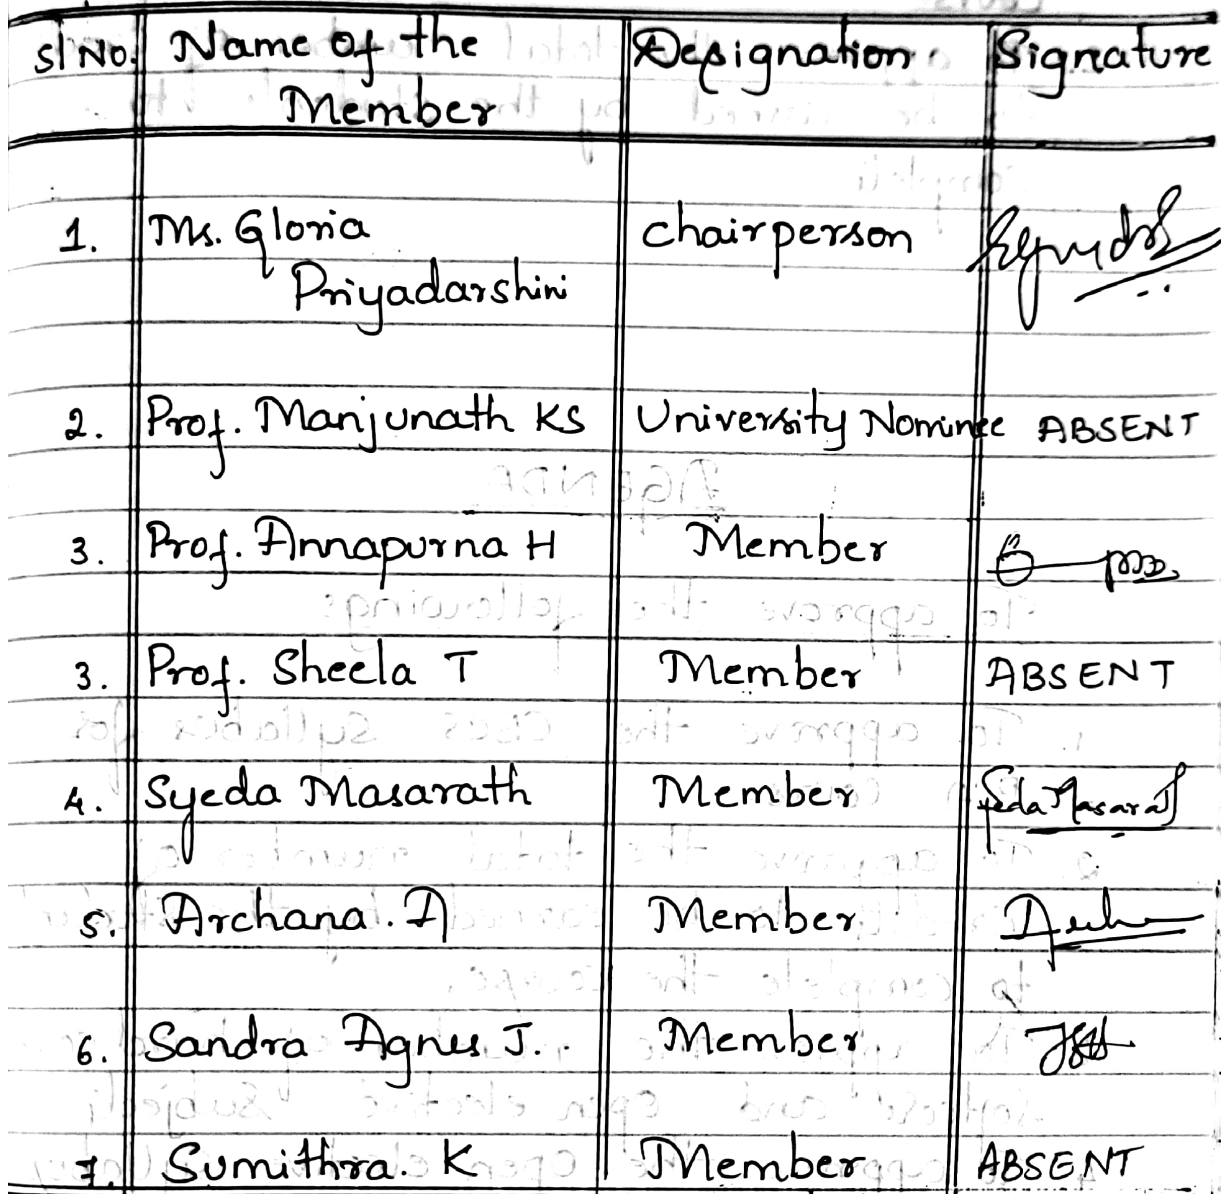 Sl No. Name of the Member Designation Signature
1. Ms. Gloria Priyadarshini Chairperson
2. Prof. Manjunath KS University Nominee ABSENT
3. Prof. Annapurna H Member
3. Prof. Sheela T Member ABSENT
4. Syeda Masarath Member Syeda Masarath
5. Archana. A Member
6. Sandra Agnes J. Member
7. Sumithra. K Member ABSENT